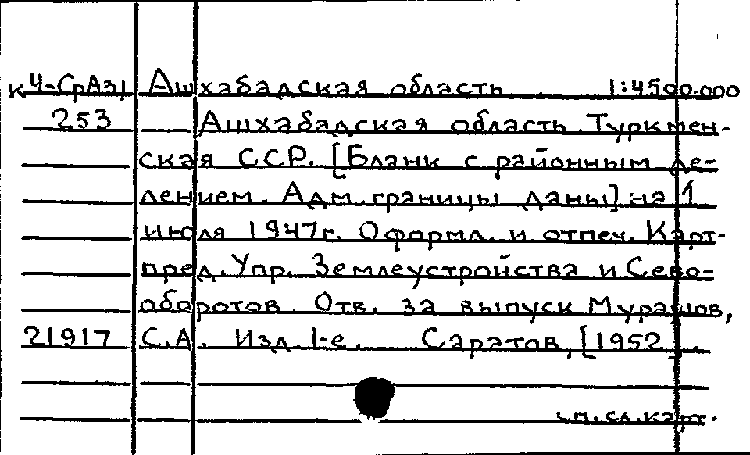 К4-СрАз1 Ашхабадская область 1:4500.000
253 Ашхабадская область Туркмен-
ская ССР. [Бланк с районным де-
лением. Адм. границы даны] на 1
июля 1947г. Оформл. и отпеч. Карт-
пред. Упр. Землеустройства и Сево-
оборотов. Отв. за выпуск Мурашов,
21917 С.А. Изд. 1-е. Саратов, [1952].
см.сл.карт.